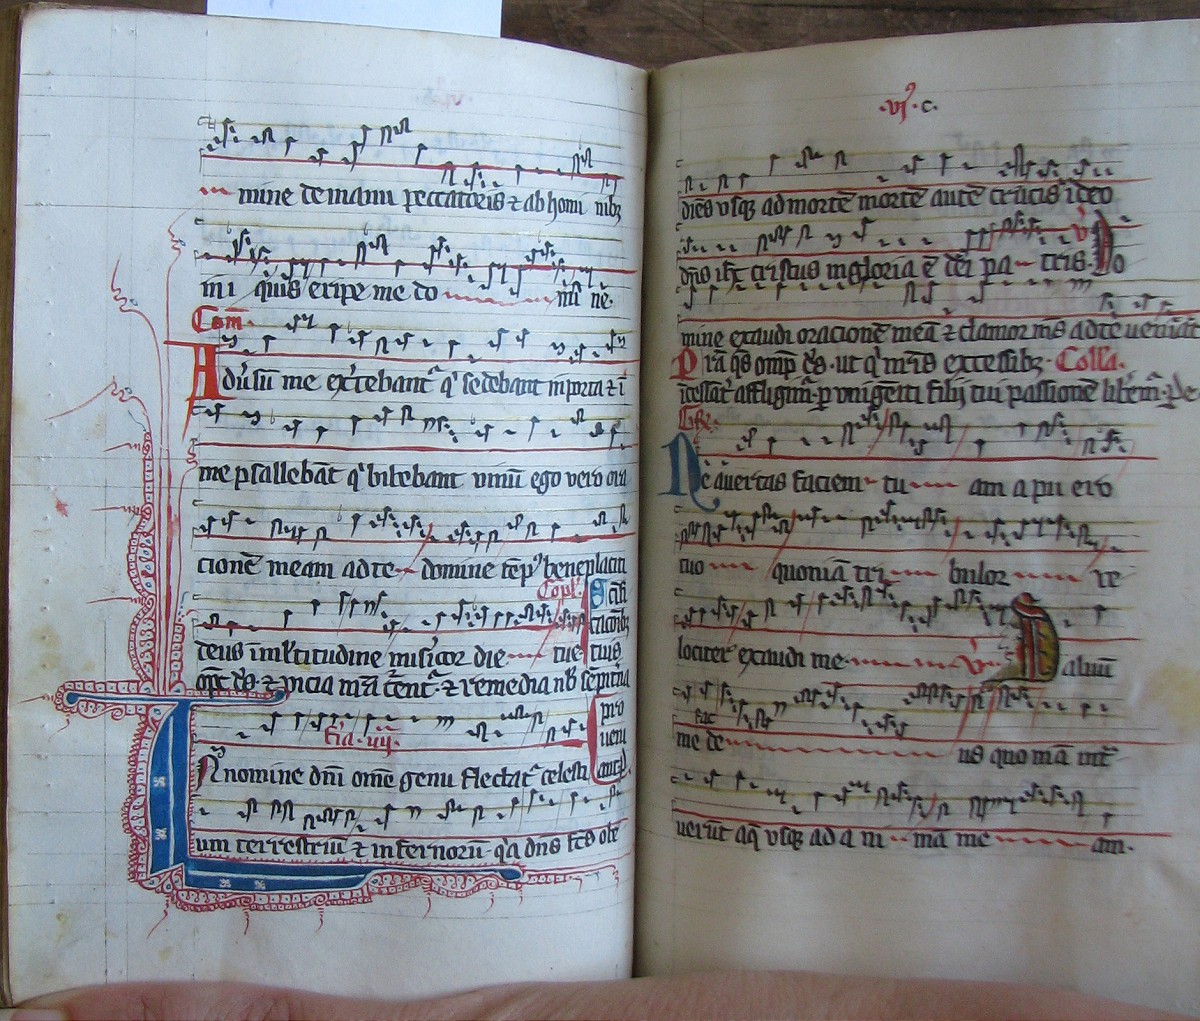 mine de manu peccatoris ⁊ ab homi nibꝫ
ini quis eripe me do mi ne.
Com̄.
Adu̓su me exe̓rcebant᷑ qͥ sedebant in porta ⁊ i̅
me psallebāt qͥ bibebant vinū ego vero ora
cionē meam ad te domine tēpꝰ beneplaciti
Cōpl̓.
deus i mł̓titudine miser̓icor die tue
⁊ vicia ⁊ remedia nb̅ sēpit̓na
fīa .iiij.
In nomine dn̄i omē genu flectat᷑ celesti
um terrestriū ⁊ infernorū q̓a dn̄s fc̄s obe
.vjͣ. c.
diēs vsqꝫ ad mortē mortē autē crucis ideo
dn̄s ihc̄ cristus in gloria ē dei pa tris. v̓ Do
mine exaudi oracionē meā ⁊ clamor mꝰs ad te ueniat
Pr̄a q̄s omp̄ ds̄. ut qͥ nr̄is excessibꝫ. Coll̄a.
īcessāt̓ affligim᷑. ꝑ vnigeniti filij tui passionē liberem᷑. ꝑ e
Gr̄.
Ne auertas faciem tu am a pu ero
tuo quoniā tri bulor ve
lociter exaudi me. v̓ Saluū
me fac de us quo niā int̓
uerūt aq̄ vsqꝫ ad a ni ma me am.